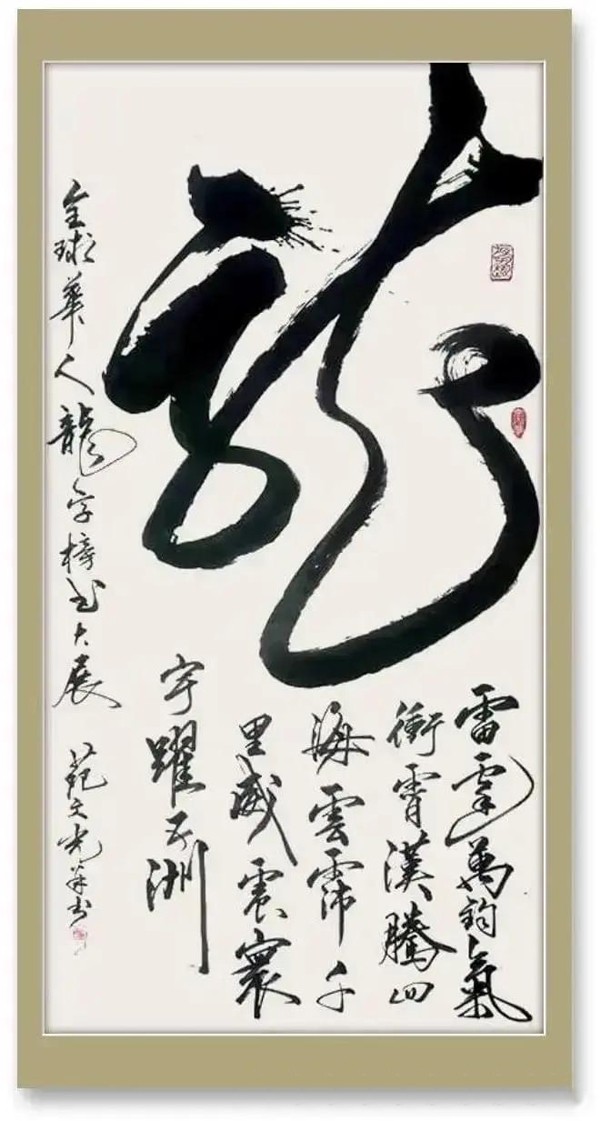 龍
雷霆萬鈞氣
衝霄漢騰四
海雲霈千
里威震寰
宇躍五洲
全球華人龍字榜书大展
范文光书